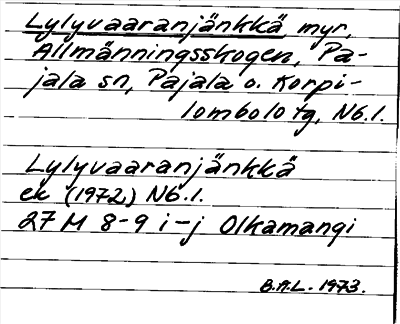 Lylyvaaranjänkkä myr,
Allmänningsskogen, Pa-
jala sn, Pajala o. Korpi-
lombolo tg, Nb.l.
Lylyvaaranjänkkä
ek (1972) Nb.l.
27 M 8-9 i-j Olkamangi
B.A.L. 1973.